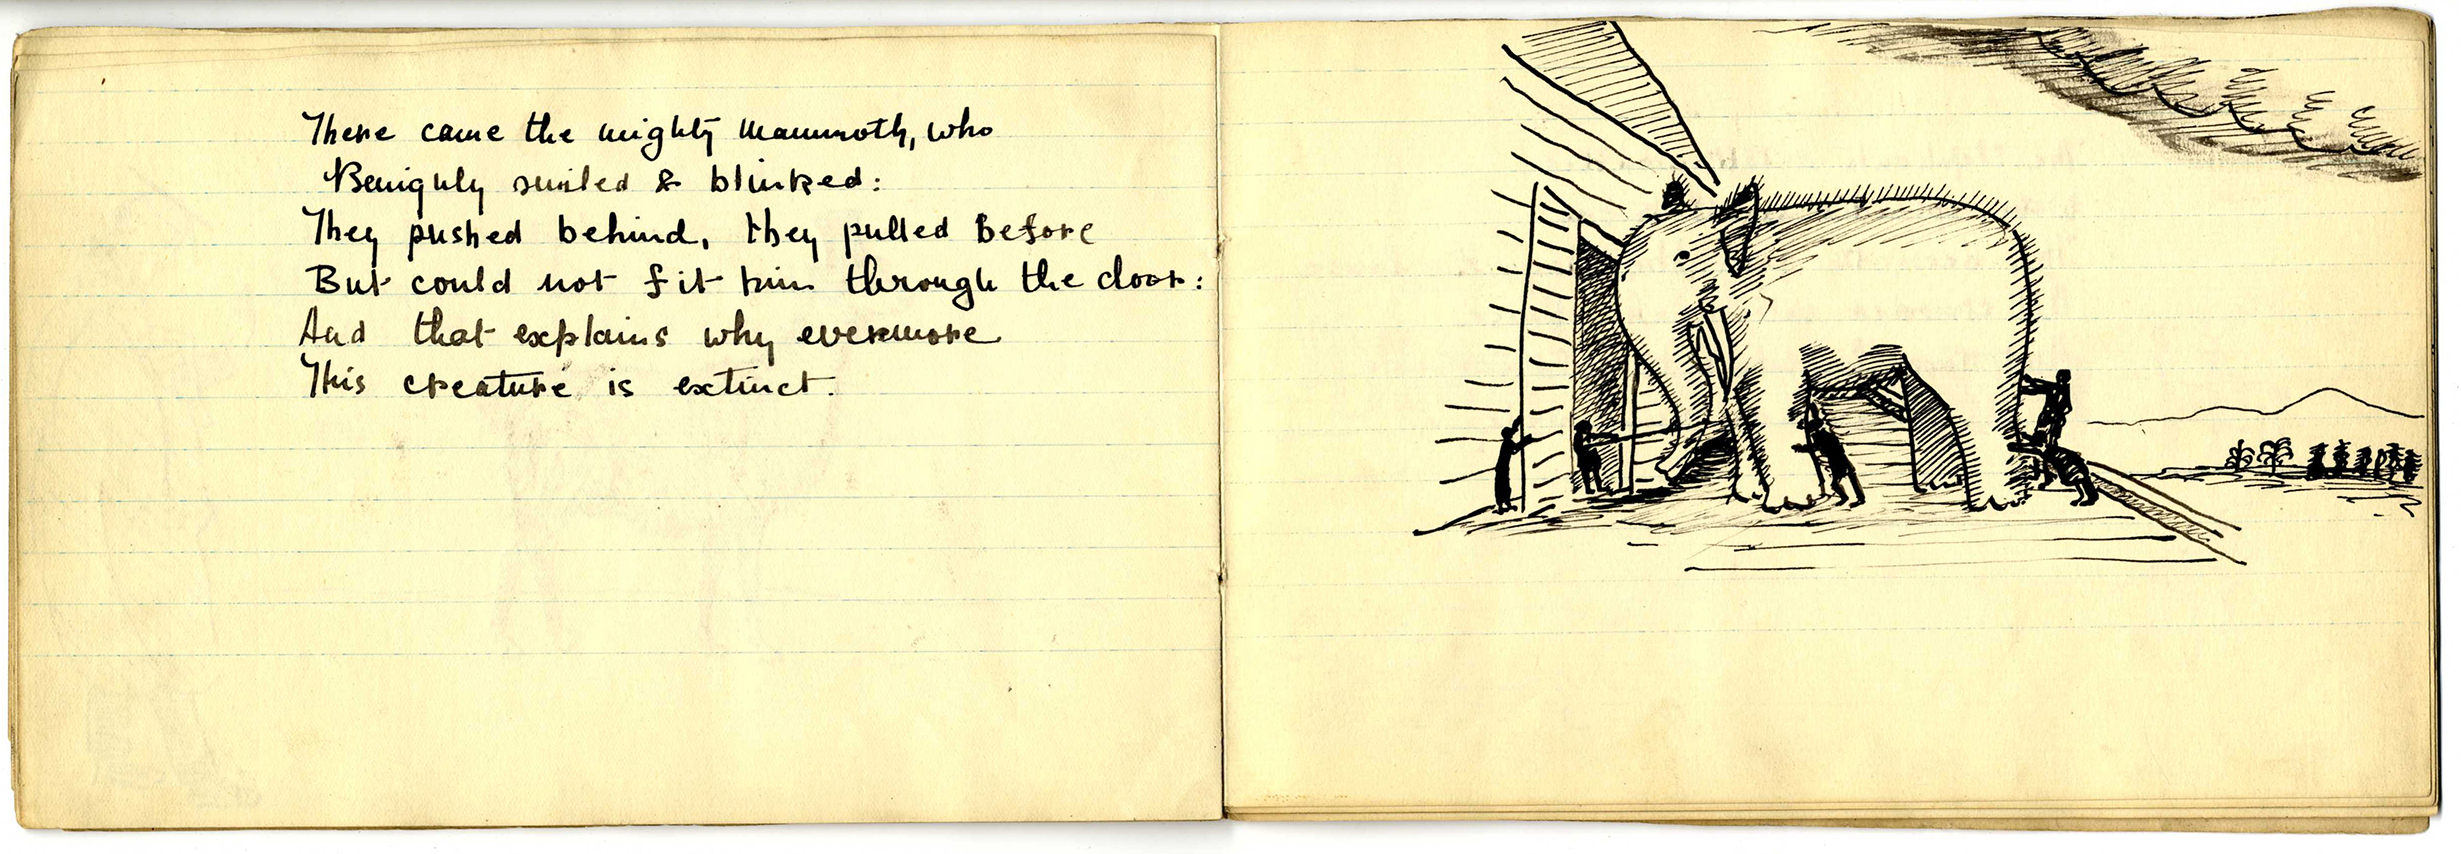 There came the mighty mammoth, who
Benignly smiled & blinked:
They pushed behind, they pulled before
But could not fit him through the door:
And that explains why evermore
This creature is extinct.